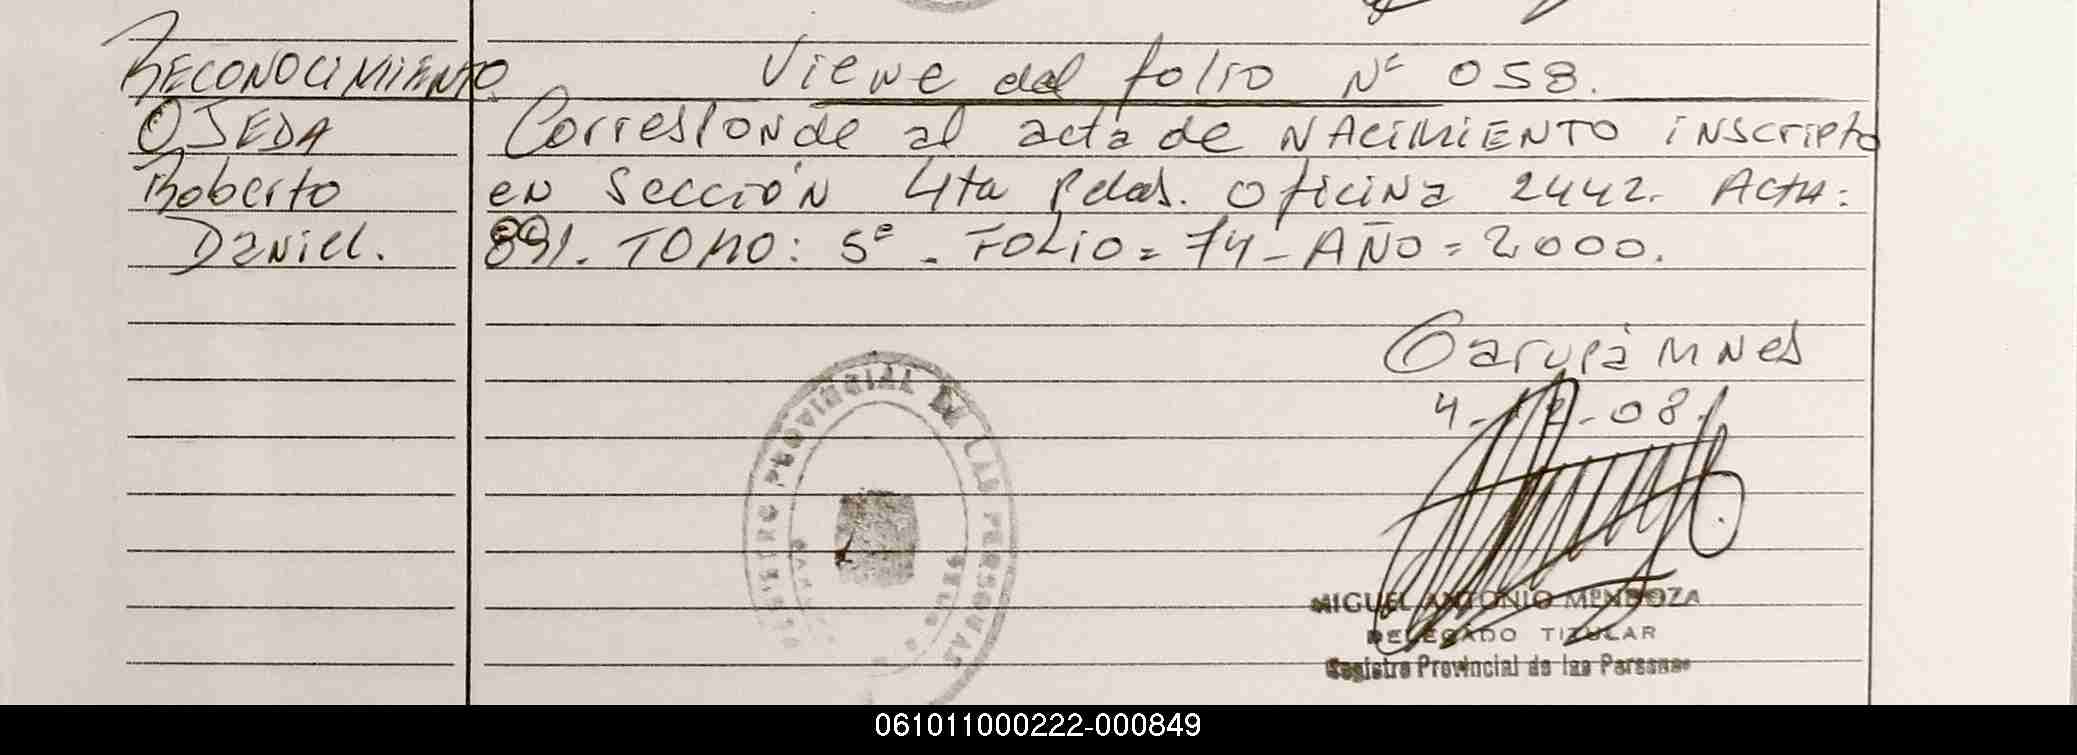 RECONOCIMIENTO
OJEDA
Roberto
Daniel.
Viene del folio Nº 058.
Corresponde al acta de NACIMIENTO inscripto
en Sección 4ta Pdas. Oficina 2442. Acta:
891. TOMO: 5º. FOLIO= 74- AÑO= 2000.
Garupá MNES
4- -08.
REGISTRO PROVINCIAL DE LAS PERSONAS
MIGUEL ANTONIO MENDOZA
DELEGADO TITULAR
Registro Provincial de las Personas
061011000222-000849